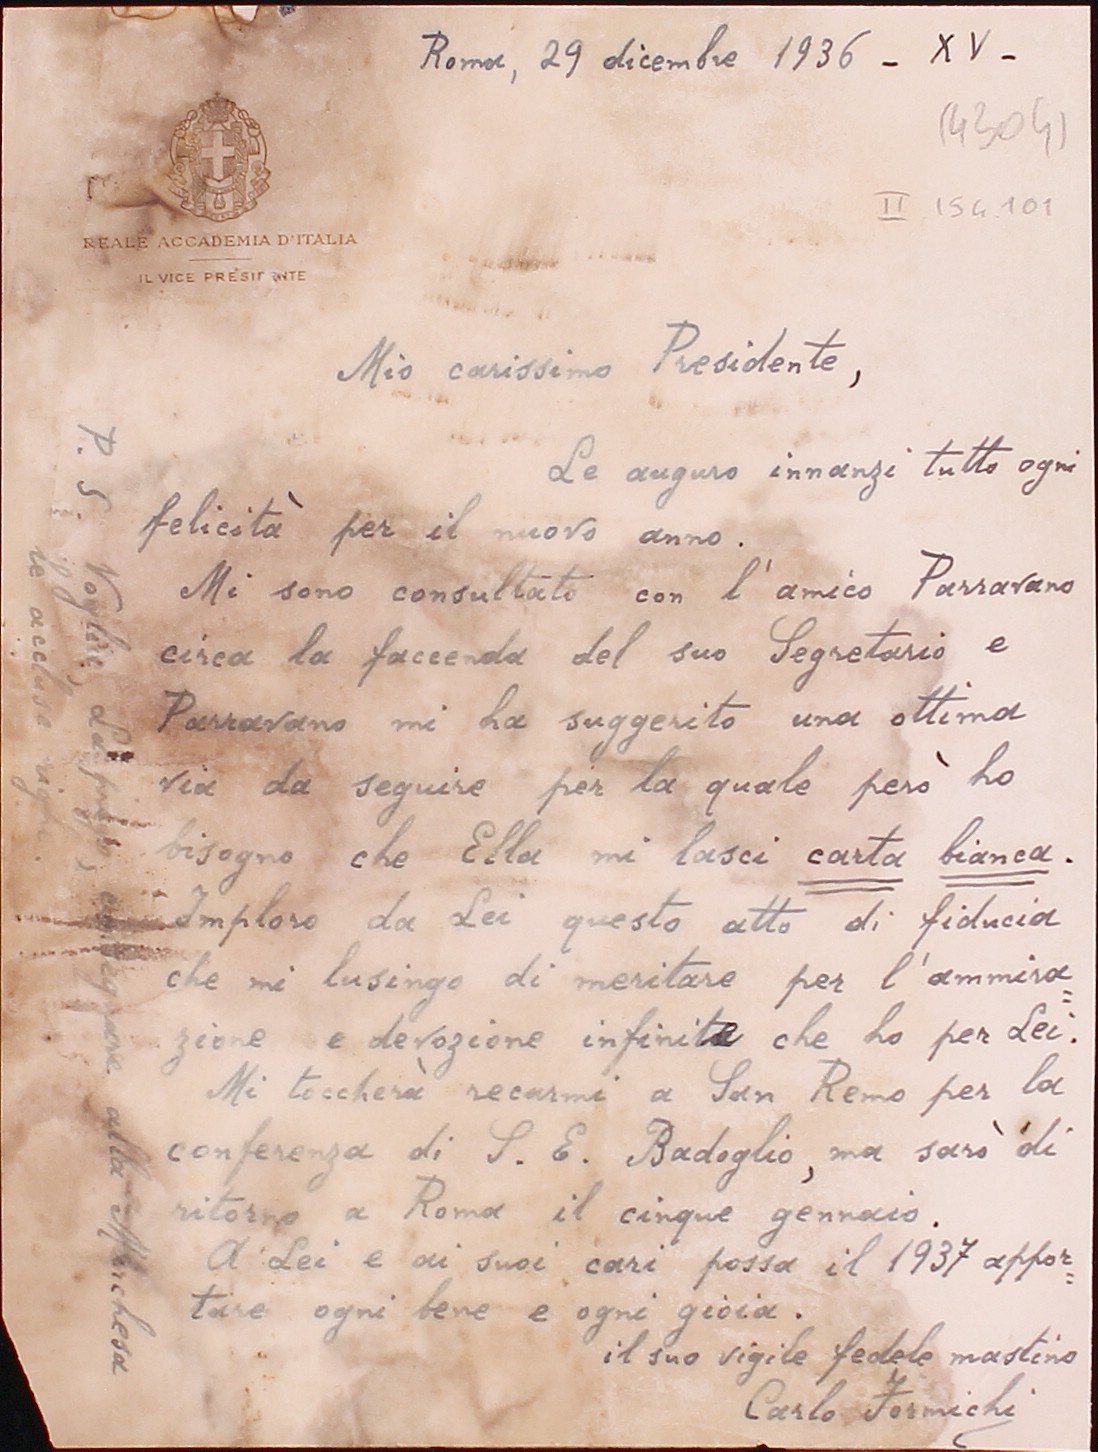 Roma, 29 dicembre 1936 - XV -
(4304)
II 154.101
REALE ACCADEMIA D'ITALIA
IL VICE PRESIDENTE
Mio carissimo Presidente,
Le auguro innanzi tutto ogni
felicità per il nuovo anno.
Mi sono consultato con l'amico Parravano
circa la faccenda del suo Segretario e
Parravano mi ha suggerito una ottima
via da seguire per la quale però ho
bisogno che Ella mi lasci carta bianca.
Imploro da Lei questo atto di fiducia
che mi lusingo di meritare per l'ammira=
zione e devozione infinita che ho per Lei.
Mi toccherà recarmi a San Remo per la
conferenza di S. E. Badoglio, ma sarò di
ritorno a Roma il cinque gennaio.
A Lei e ai suoi cari possa il 1937 appor=
tare ogni bene e ogni gioia.
il suo vigile fedele mastino
Carlo Formichi
P. S. Voglia, La prego, consegnare alla Marchesa
le accluse righe.